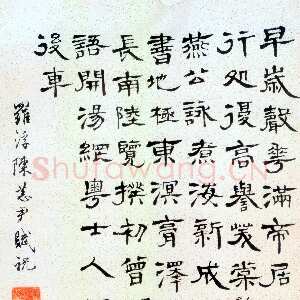 早歲聲華滿帝居
行処復高譽茇棠
燕公詠煮海新成
書地極東溟育澤
長南陸覽撰初曾
語開湯網粵士人
後車
羅浮陳恭尹賦祝
Shufawang.CN